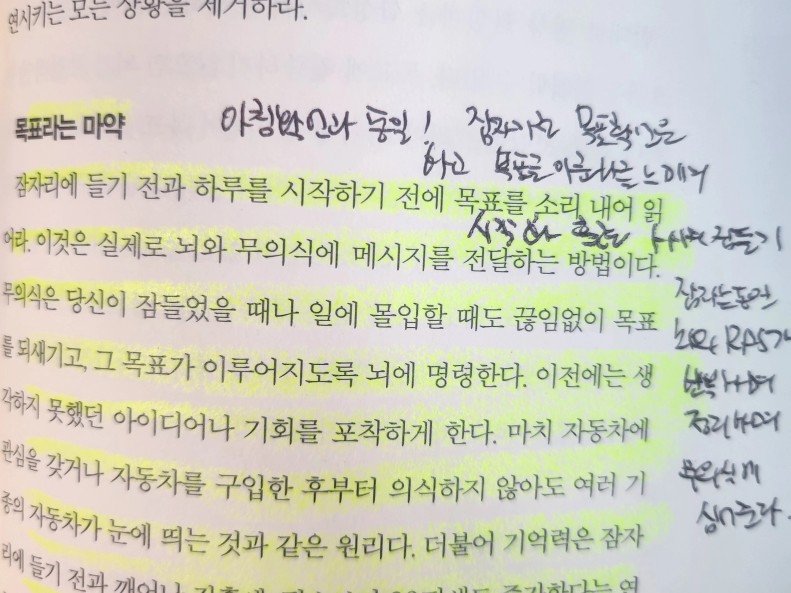 연시키는 모든 상황을 제거하라.
목표라는 마약
아침확언과 동일! 잠자기전 목표확언을
하고 목표를 이룬다는 느낌에
잠들기
잠자리에 들기 전과 하루를 시작하기 전에 목표를 소리 내어 읽
어라. 이것은 실제로 뇌와 무의식에 메시지를 전달하는 방법이다.
무의식은 당신이 잠들었을 때나 일에 몰입할 때도 끊임없이 목표
를 되새기고, 그 목표가 이루어지도록 뇌에 명령한다. 이전에는 생
각하지 못했던 아이디어나 기회를 포착하게 한다. 마치 자동차에
관심을 갖거나 자동차를 구입한 후부터 의식하지 않아도 여러 기
종의 자동차가 눈에 띄는 것과 같은 원리다. 더불어 기억력은 잠자
리에 들기 전과 깨어나
잠자는동안
뇌의 RAS가
반복하며
정리하며
무의식에
심어준다.